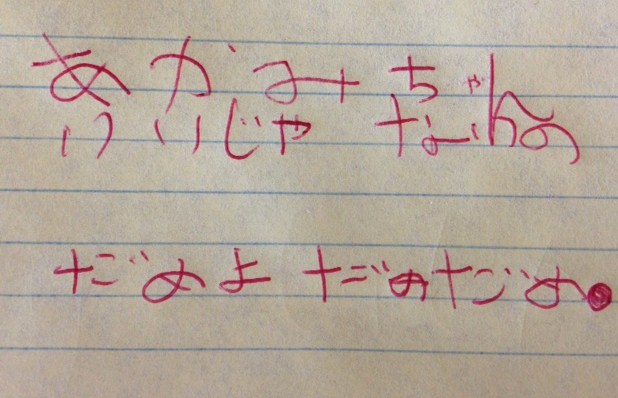 あかみちゃん
いいじゃ ないの
だめよ だめだめ。